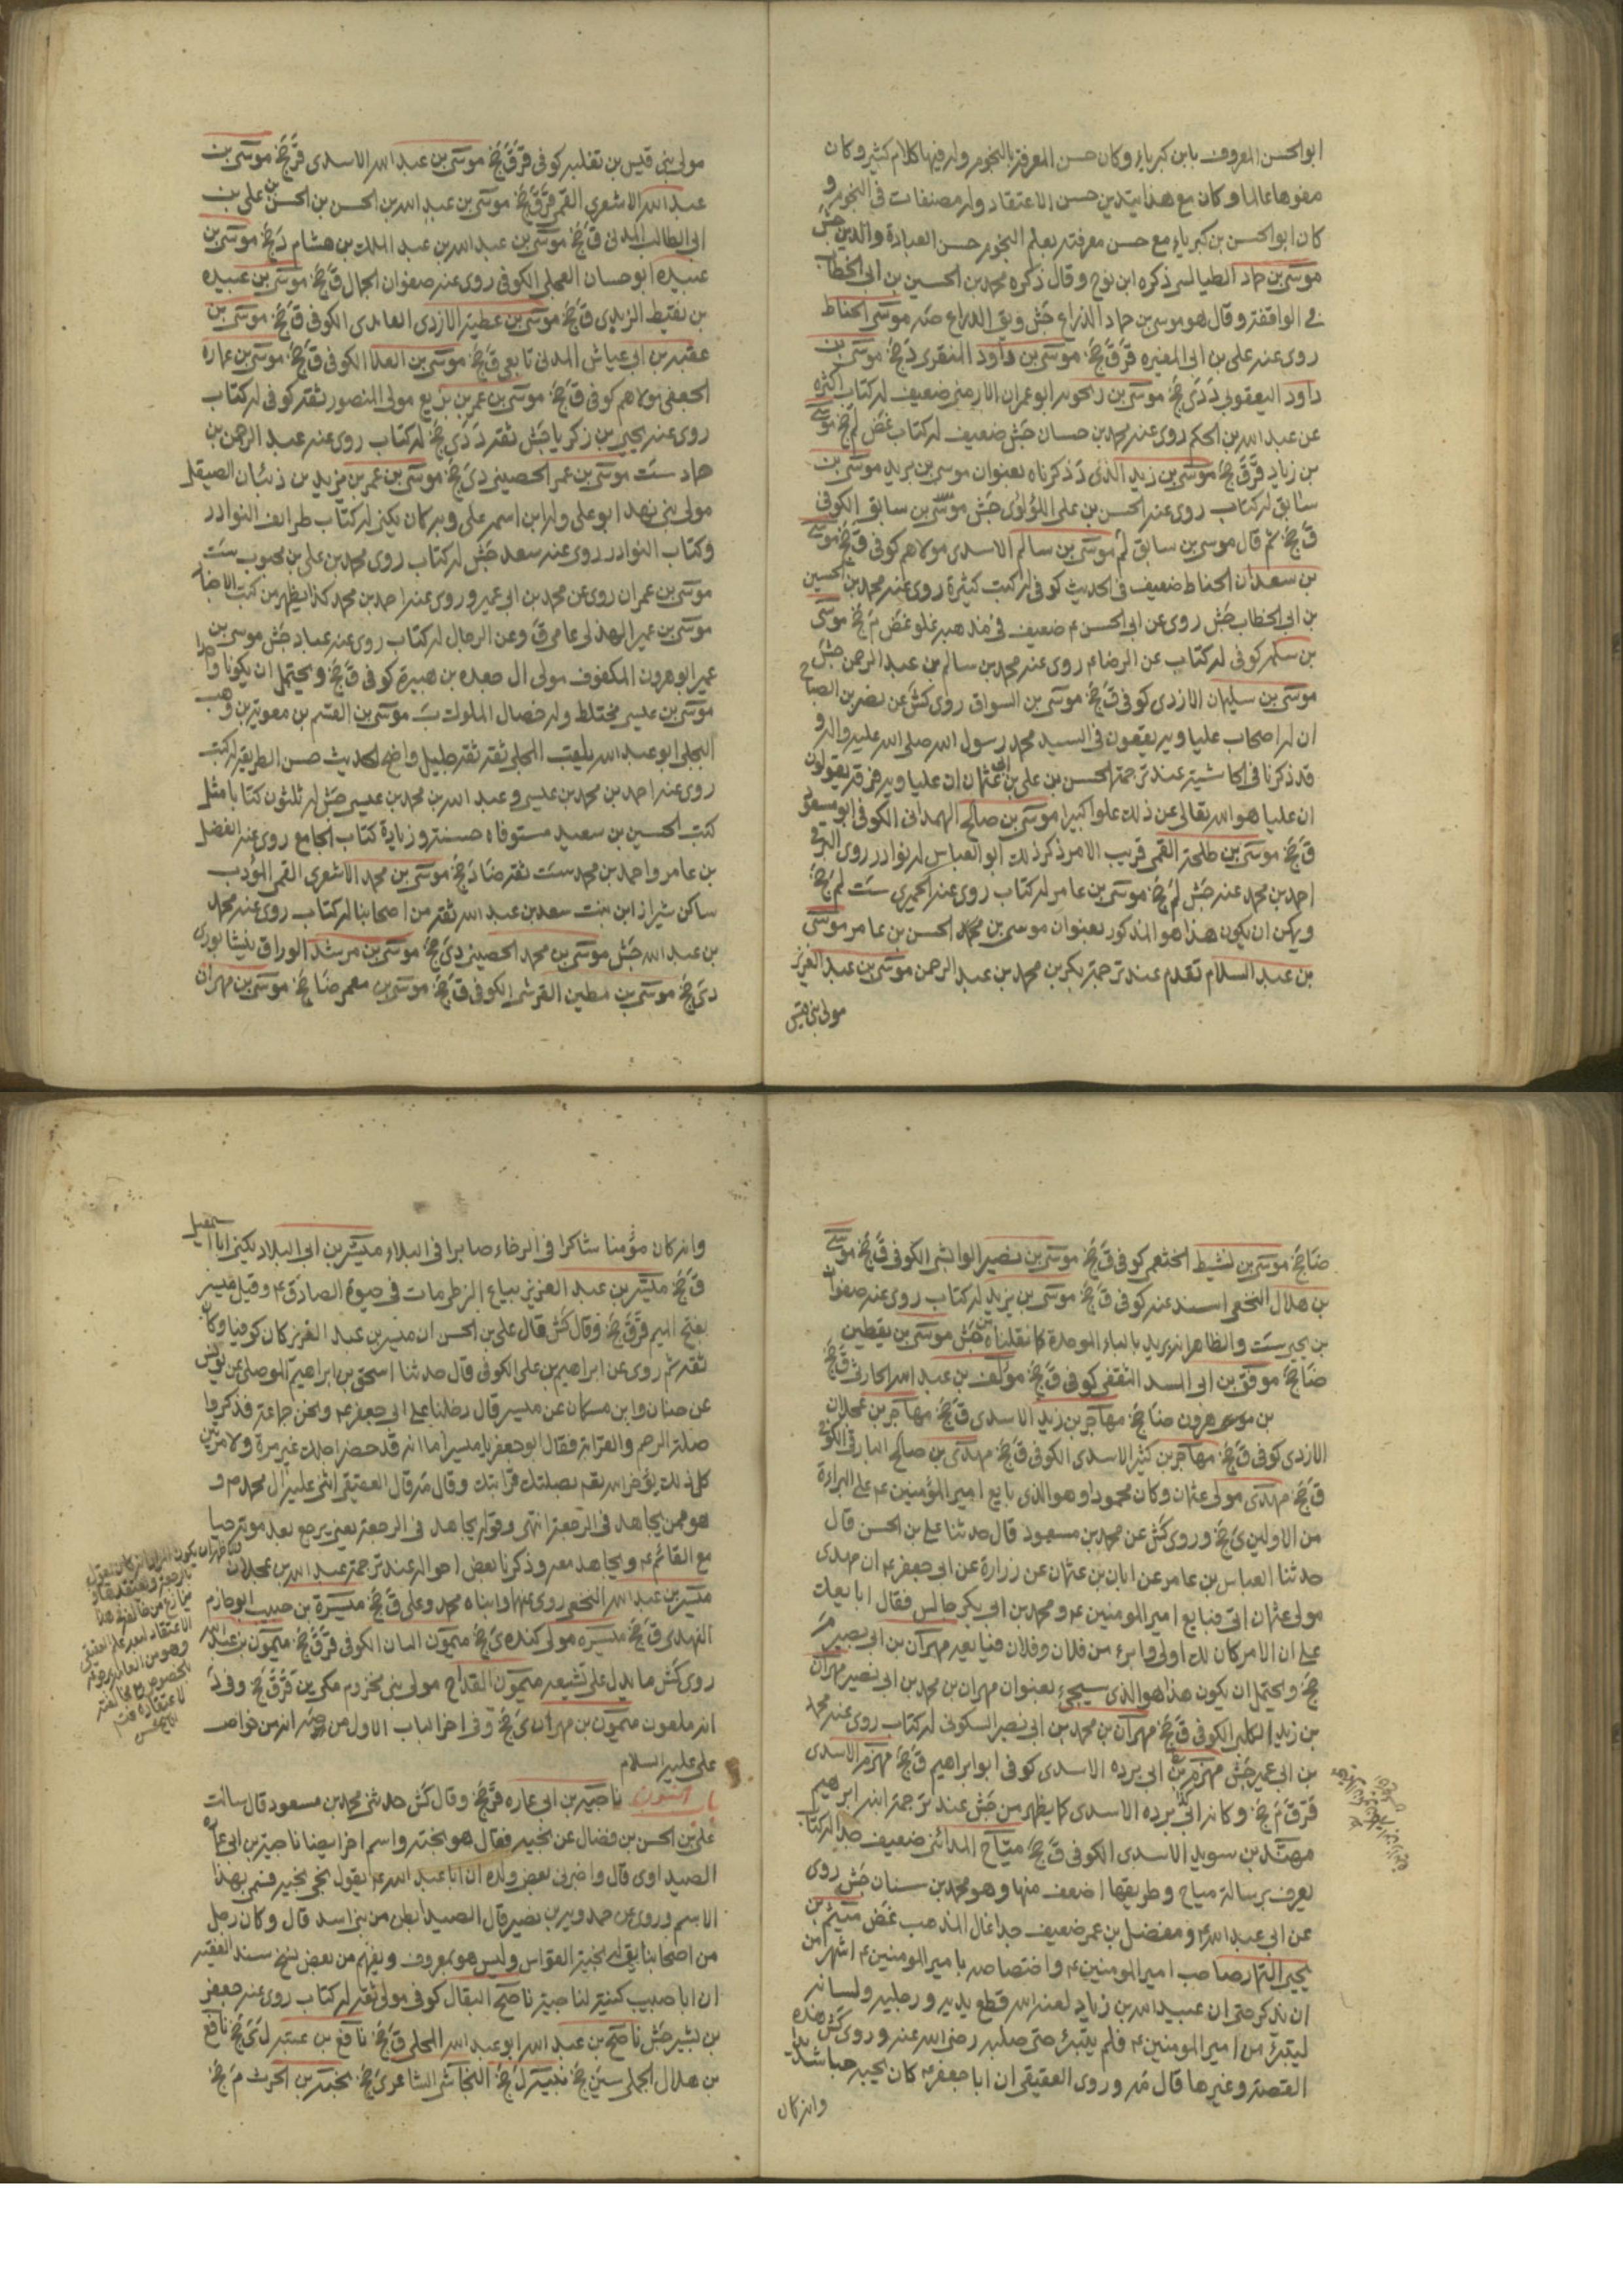 ابو الحسن المعروف بابن كبرياء وكان حسن المعرفة بالنجوم وله فيها كلام كثير وكان
مفوها عالما وكان مع هذا يتدين حسن الاعتقاد وله مصنفات في النجوم و
كان ابو الحسن بن كبرياء مع حسن معرفته بعلم النجوم حسن العبادة والدين جش
موسى بن حماد الطيالسي ذكره ابن نوح وقال ذكره محمد بن الحسين بن ابي الخطاب
في الواقفة وقال هو موسى بن حماد الذراع جش وبق الذراع صه موسى الحناط
روى عنه علي بن ابي المغيره قر ق جخ موسى بن داود المنقري د جخ موسى بن
داود اليعقوبي د دى جخ موسى بن رنجويه ابو عمران الارمني ضعيف له كتاب اكثره
عن عبد الله بن الحكم روى عنه محمد بن حسان جش ضعيف له كتاب غض لم جخ موسى
بن زياد قر ق جخ موسى بن زيد الذى د ذكرناه بعنوان موسى بن يريد موسى بن
سابق له كتاب روى عنه الحسن بن علي اللؤلؤي جش موسى بن سابق الكوفي
ق جخ ثم قال موسى بن سابق لم موسى بن سالم الاسدى مولاهم كوفى ق جخ موسى
بن سعدان الحناط ضعيف في الحديث كوفى له كتب كثيرة روى عنه محمد بن الحسين
بن ابي الخطاب جش روى عن ابي الحسن ع ضعيف في مذهبه غلو غض م جخ موسى
بن سلمه كوفى له كتاب عن الرضا ع روى عنه محمد بن سالم بن عبد الرحمن جش
موسى بن سليمان الازدى كوفى ق جخ موسى بن السواق روى كش عن نصر بن الصباح
ان له اصحاب علياوية يقعون في السيد محمد رسول الله صلى الله عليه واله و
قد ذكرنا في الحاشية عند ترجمة الحسن بن علي بن ابي عثمان ان علياوية فرقة يقولون
ان عليا هو الله تعالى عن ذلك علوا كبيرا موسى بن صالح الهمداني الكوفى ابو مسعود
ق جخ موسى بن طلحة القمى قريب الامر ذكر ذلك ابو العباس له نوادر روى البرقي
احمد بن محمد عنه جش لم جخ موسى بن عامر له كتاب روى عنه الحميري ست لم جخ
ويمكن ان يكون هذا هو المذكور بعنوان موسى بن محمد الحسن بن عامر موسى
بن عبد السلام تقدم عند ترجمة بكر بن محمد بن عبد الرحمن موسى بن عبد العزيز
مولى بني قيس
مولى بني قيس بن ثعلبه كوفى قر ق جخ موسى بن عبد الله الاسدى قر جخ موسى بن
عبد الله الاشعري القمى قر ق جخ موسى بن عبد الله بن الحسن بن الحسن بن علي بن
ابي طالب المدنى ق جخ موسى بن عبد الله بن عبد الملك بن هشام د جخ موسى بن
عبيده ابو حسان العجلى الكوفى روى عنه صفوان الجمال ق جخ موسى بن عبيده
بن نقيط الزبيدي ق جخ موسى بن عطيه الازدى العامدى الكوفى ق جخ موسى بن
عقبه بن ابي عياش المدنى تابعى ق جخ موسى بن العلا الكوفى ق جخ موسى بن عماره
الجعفى مولاهم كوفى ق جخ موسى بن عمر بن بزيع مولى المنصور ثقة كوفى له كتاب
روى عنه يحيى بن زكريا جش ثقة د دي جخ له كتاب روى عنه عبد الرحمن بن
حماد ست موسى بن عمر الحصينى دى جخ موسى بن عمر بن يزيد بن ذبيان الصيقل
مولى بني نهد ابو على وله ابن اسمه على وبه كان يكنى له كتاب طرايف النوادر
وكتاب النوادر روى عنه سعد جش له كتاب روى محمد بن علي بن محبوب ست
موسى بن عمران روى عن محمد بن ابي عمير وروى عنه احمد بن محمد كذا يظهر من كتب الاخبار
موسى بن عمير الهذلى عامى ق وعن الرجال له كتاب روى عنه عباد جش موسى بن
عمير ابو هرون المكفوف مولى ال جعده بن هبيرة كوفى ق جخ ويحتمل ان يكونا واحدا
موسى بن عيسى مختلط وله خصال الملوك ب موسى بن القسم بن معوية بن وهب
البجلى ابو عبد الله يلقب المجلى ثقة ثقة جليل واضح الحديث حسن الطريقة له كتب
روى عنه احمد بن محمد بن عيسى وعبد الله بن محمد بن عيسى جش له ثلثون كتابا مثل
كتب الحسين بن سعيد مستوفاه حسنة وزيادة كتاب الجامع روى عنه الفضل
بن عامر واحمد بن محمد ست ثقة ضا د جخ موسى بن محمد الاشعرى القمى المؤدب
ساكن شيراز ابن بنت سعد بن عبد الله ثقة من اصحابنا له كتاب روى عنه محمد
بن عبد الله جش موسى بن محمد الحصينى دى جخ موسى بن مرشد الوراق نيشابورى
دى جخ موسى بن مطين القرشى الكوفى ق جخ موسى بن معمر ضا جخ موسى بن مهران
ضا جخ موسى بن نشيط الخثعمى كوفى ق جخ موسى بن نصير الوابشى الكوفى ق جخ موسى
بن هلال النخعى اسند عنه كوفى ق جخ موسى بن يزيد له كتاب روى عنه صفوان
بن يحيى ست والظاهر انه بريد بالباء الموحدة كما نقلناه من جش موسى بن يقطين
ضا جخ موفق بن ابي السد الثقفى كوفى ق جخ مؤلف بن عبد الله الحارثى ق جخ
بن موسى هرون ضا جخ مهاجر بن زيد الاسدى ق جخ مهاجر بن عجلان
الازدى كوفى ق جخ مهاجر بن كثير الاسدى الكوفى ق جخ مهدى بن صالح البارقى الكوفى
ق جخ مهدى مولى عثمان وكان محمودا وهو الذى بايع امير المؤمنين ع على البراءة
من الاولين ى جخ وروى كش عن محمد بن مسعود قال حدثنا على بن الحسن قال
حدثنا العباس بن عامر عن ابان بن عثمان عن زرارة عن ابي جعفر ع ان مهدى
مولى عثمان اتى فبايع امير المومنين ع ومحمد بن ابي بكر جالس فقال ابايعك
على ان الامر كان لك اولى وابرء من فلان وفلان فبايعه مهران بن ابي نصير م
جخ ويحتمل ان يكون هذا هو الذى سيجيء بعنوان مهران بن محمد بن ابي نصير مهران
بن زيد الكلبى الكوفى ق جخ مهران بن محمد بن ابي نصر السكونى له كتاب روى عنه محمد
بن ابي عمير جش مهزم بن ابي برده الاسدى كوفى ابو ابراهيم ق جخ مهزم الاسدى
قر ق م جخ وكانه ابن ابي برده الاسدى كما يظهر من جش عند ترجمة ابنه ابراهيم
مهند بن سويد الاسدى الكوفى ق جخ مياح المدائنى ضعيف جدا له كتاب
يعرف برسالة مياح وطريقها اضعف منها وهو محمد بن سنان جش روى
عن ابي عبد الله ع ومفضل بن عمر ضعيف جدا غال المذهب غض ميثم بن
يحيى التمار صاحب امير المومنين ع واختصاصه بامير المومنين ع اشهر من
ان يذكر حتى ان عبيد الله بن زياد لعنه الله قطع يديه ورجليه ولسانه
ليتبرئ من امير المومنين ع فلم يتبرئ حتى صلبه رضى الله عنه وروى كش هذه
القصة وغيرها قال مد وروى العقيقى ان ابا جعفر ع كان يحبه حبا شديدا
وانه كان
وانه كان مؤمنا شاكرا في الرخاء صابرا في البلاء ميسر بن ابي البلاد يكنى ابا اسمعيل
ق جخ ميسر بن عبد العزيز بياع الزطى مات في حيوة الصادق ع وقيل ميسر
بفتح الميم قر ق جخ وقال كش قال على بن الحسن ان ميسر بن عبد العزيز كان كوفيا وكان
ثقة ثم روى عن ابراهيم بن على الكوفى قال حدثنا اسحق بن ابراهيم الموصلى عن يونس
عن حنان وابن مسكان عن ميسر قال دخلنا على ابي جعفر ع ونحن جماعة فذكروا
صلة الرحم والقرابة فقال ابو جعفر يا ميسر اما انه قد حضر اجلك غير مرة ولا مرتين
كل ذلك يؤخر الله بصلتك قرابتك وقال مد قال العقيقى اثنى عليه ال محمد ع و
هو ممن يجاهد في الرجعة انتهى وقوله يجاهد في الرجعة يعنى يرجع بعد موته حيا
مع القائم ع ويجاهد معه وذكرنا بعض احواله عند ترجمة عبد الله بن عجلان
ميسر بن عبد الله النخعى روى عنهما وابناه محمد وعلى ق جخ ميسرة بن حبيب ابو حازم
النهدى ق جخ ميسره مولى كنده ى جخ ميمون البان الكوفى قر ق جخ ميمون بن عبد الله
روى كش ما يدل على تشيعه ميمون القداح مولى بني مخزوم مكى ين قر ق جخ وفى د
انه ملعون ميمون بن مهران ى جخ وفى اخر الباب الاول من صه انه من خواص
على عليه السلام
باب النون ناجيه بن ابي عماره قر جخ وقال كش حدثنى محمد بن مسعود قال سالت
على بن الحسن بن فضال عن نجيه فقال هو نجيه واسم اخر ايضا ناجية بن ابي عماره
الصيداوى قال واخبرنى بعض ولده ان ابا عبد الله ع يقول نجى نجيه فسمى بهذا
الاسم وروى عن حمدويه بن نصير قال الصيدا بطن من بنى اسد قال وكان رجل
من اصحابنا يقال له نجية القواس وليس هو بمعروف ويفهم من بعض نسخ سند الفقيه
ان ابا حبيب كنية لناجية ناصح البقال كوفى مولى ثقة له كتاب روى عنه جعفر
بن بشير جش ناصح بن عبد الله ابو عبد الله المحلمى ق جخ نافع بن عتبه ل ى جخ نافع
بن هلال الجملى سين جخ نبيه ل جخ النجاشى الشاعر ى جخ نجبة بن الحرث م جخ